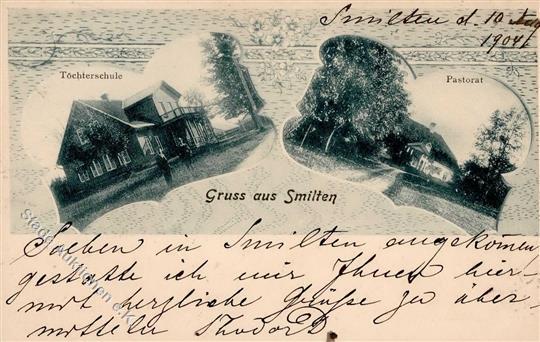 Smilten d. 10 Aug
1904.
Töchterschule
Pastorat
Gruss aus Smilten
Soeben in Smilten angekomen,
gestatte ich mir Ihnen hier-
mit herzliche Grüße zu über-
mitteln Theodor